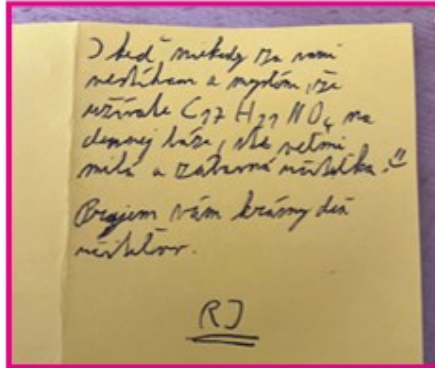 I keď niekedy za vami
nestíham a myslím, že
užívate C₁₇ H₂₁ NO₄ na
dennej báze, ste veľmi
milá a zábavná učiteľka.
Prajem vám krásny deň
učiteľov.
RJ